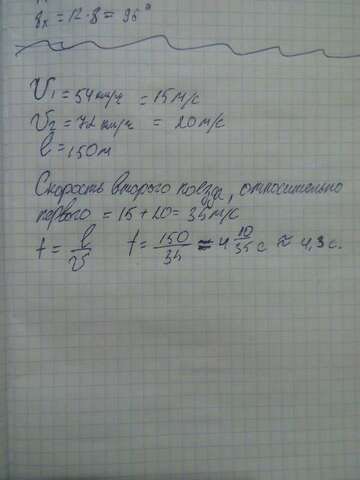 8х = 12·8 = 96°
V₁ = 54 км/ч = 15 м/с
V₂ = 72 км/ч = 20 м/с
l = 150 м
Скорость второго поезда, относительно
первого = 15 + 20 = 35 м/с
t = l/v t = 150/34 = 4 10/35 с ≈ 4,3 с.